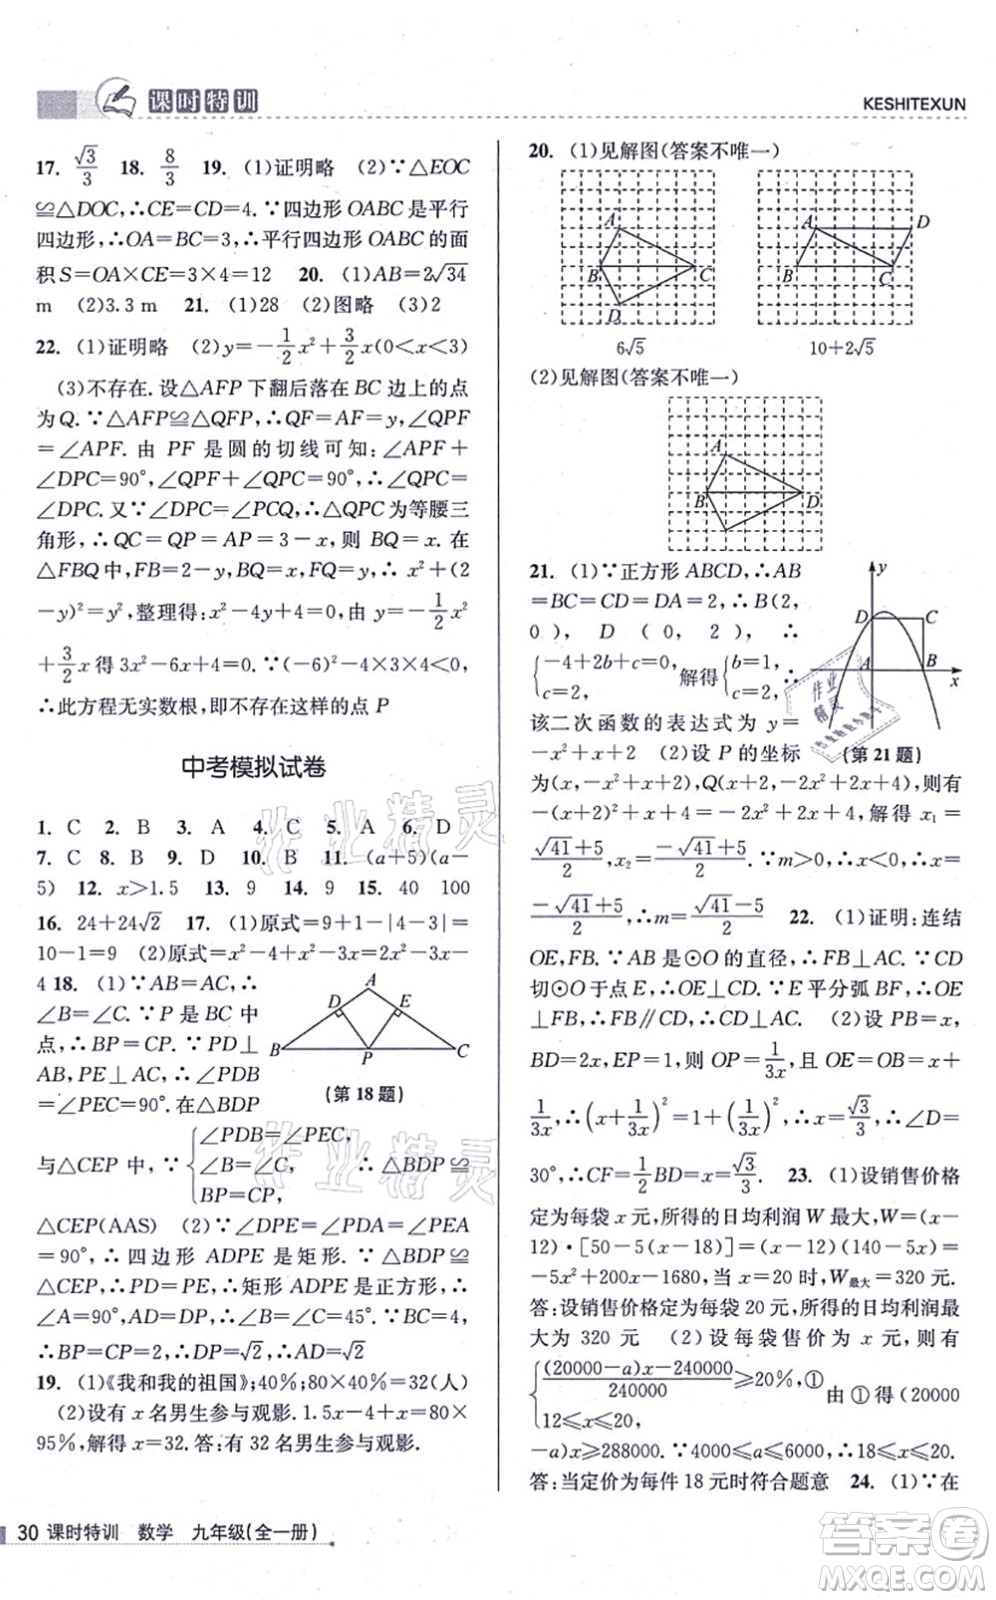 课时特训
KESHITEXUN
17. √3/3 18. 8/3 19. (1)证明略 (2)∵△EOC
≌△DOC,∴CE=CD=4.∵四边形OABC是平行
四边形,∴OA=BC=3,∴平行四边形OABC的面
积S=OA×CE=3×4=12 20. (1)AB=2√34
m (2)3.3 m 21. (1)28 (2)图略 (3)2
22. (1)证明略 (2)y=-1/2x²+3/2x(0<x<3)
(3)不存在.设△AFP下翻后落在BC边上的点
为Q.∵△AFP≌△QFP,∴QF=AF=y,∠QPF
=∠APF.由PF是圆的切线可知:∠APF+
∠DPC=90°,∠QPF+∠QPC=90°,∴∠QPC=
∠DPC.又∵∠DPC=∠PCQ,∴△QPC为等腰三
角形,∴QC=QP=AP=3-x,则BQ=x.在
△FBQ中,FB=2-y,BQ=x,QF=y,∴x²+(2
-y)²=y²,整理得:x²-4y+4=0,由y=-1/2x²
+3/2x得3x²-6x+4=0.∵(-6)²-4×3×4<0,
∴此方程无实数根,即不存在这样的点P
中考模拟试卷
1. C 2. B 3. A 4. C 5. A 6. D
7. C 8. B 9. D 10. B 11. (a+5)(a-
5) 12. x>1.5 13. 9 14. 9 15. 40 100
16. 24+24√2 17. (1)原式=9+1-|4-3|=
10-1=9 (2)原式=x²-4+x²-3x=2x²-3x-
4 18. (1)∵AB=AC,∴
∠B=∠C.∵P是BC中
点,∴BP=CP.∵PD⊥
AB,PE⊥AC,∴∠PDB
=∠PEC=90°.在△BDP
A
D
E
B
P
C
(第18题)
与△CEP中,∵{∠PDB=∠PEC,
∠B=∠C,
BP=CP,
∴△BDP≌
△CEP(AAS) (2)∵∠ADP=∠PDA=∠PEA
=90°,∴四边形ADPE是矩形.∵△BDP≌
△CEP,∴PD=PE,∴矩形ADPE是正方形,∴
∠A=90°,∴∠BPD=∠CPE=∠B=∠C=45°.
∴BP=CP=√2BD=√2
19. (1)《我和我的祖国》;40%;80×40%=32(人)
(2)设有x名男生参与观影.1.5x-4+x=80×
95%,解得x=32.答:有32名男生参与观影.
20. (1)见解图(答案不唯一)
A
B
C
D
6√5
A
D
B
C
10+2√5
(2)见解图(答案不唯一)
A
B
D
21. (1)∵正方形ABCD,∴AB
=BC=CD=DA=2,∴B(2,
0),D(0,2),∴
{-4+2b+c=0,
c=2,
解得{b=1,
c=2,
∴
该二次函数的表达式为y=
-x²+x+2 (2)设P的坐标
y
D
C
A
B
x
(第21题)
为(x,-x²+x+2),Q(x+2,-2x²+2x+4),则有
-(x+2)²+(x+2)+2=-2x²+2x+4,解得x₁=
(√41+5)/2,x₂=(-√41+5)/2.∵m>0,∴x<0,∴x=
(-√41+5)/2,∴m=(√41-5)/2 22. (1)证明:连结
OE,FB.∵AB是⊙O的直径,∴FB⊥AC.∵CD
切⊙O于点E,∴OE⊥CD.∵E平分弧BF,∴OE
⊥FB,∴FB∥CD,∴AC⊥CD. (2)设PB=x,
BD=2x,EP=1,则OP=1/3x,且OE=OB=x+
1/3x,∴(x+1/3x)²=1+(1/3x)²,∴x=√3/3,∴∠D=
30°,∴CF=1/2BD=x=√3/3. 23. (1)设销售价格
定为每袋x元,所得的日均利润W最大,W=(x-
12)·[50-5(x-18)]=(x-12)(140-5x)=
-5x²+200x-1680,当x=20时,W最大=320元.
答:设销售价格定为每袋20元,所得的日均利润最大
为320元 (2)设每袋售价为x元,则有
{((20000-a)x-240000)/240000≥20%,①
12≤x≤20,
由①得(20000
-a)x≥288000.∵4000≤a≤6000,∴18≤x≤20.
答:当定价为每件18元时符合题意 24. (1)∵在
30 课时特训 数学 九年级(全一册)
作业精灵
作业精灵
作业精灵
答案圈
MXQE.COM